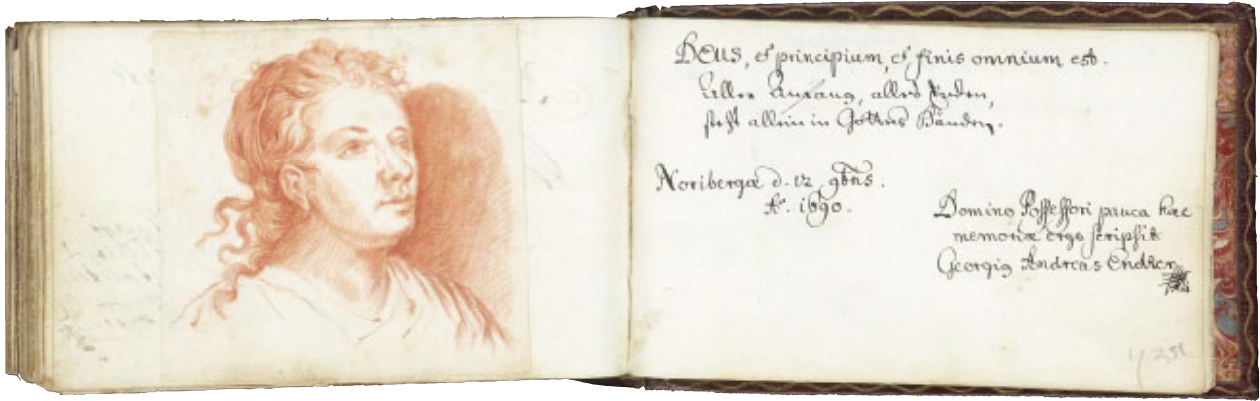 DEUS, & principium, & finis omnium est.
Aller Anfang, alles Enden,
steht allein in Gottes Händen.
Noribergæ d. 12 9btis.
Aº. 1690.
Domino Possessori pauca hæc
memoriæ ergo scripsit
Georgius Andreas Endter